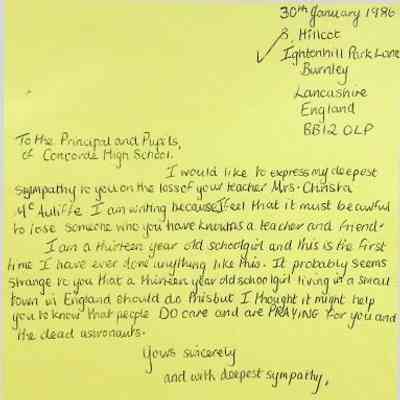 30th January 1986
8, Hillcot
Ightenhill Park Lane
Burnley
Lancashire
England
BB12 OLP
To the Principal and Pupils,
of Concorde High School.
I would like to express my deepest
sympathy to you on the loss of your teacher Mrs. Christa
Mc Auliffe I am writing because I feel that it must be awful
to lose someone who you have known as a teacher and friend.
I am a thirteen year old schoolgirl and this is the first
time I have ever done anything like this. It probably seems
strange to you that a thirteen year old schoolgirl living in a small
town in England should do this but I thought it might help
you to know that people DO care and are PRAYING for you and
the dead astronauts.
Yours sincerely
and with deepest sympathy,